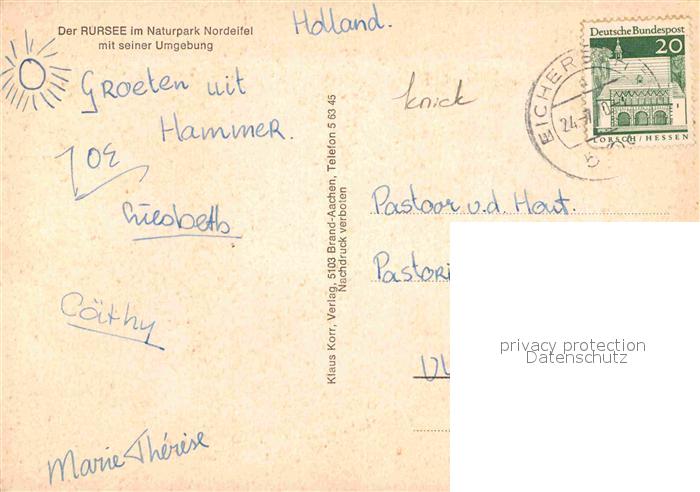 Der RURSEE im Naturpark Nordeifel
mit seiner Umgebung
Holland.
Groeten uit
Hammer.
Liesbeth
Cathy
Marie Thérèse
Klaus Korr, Verlag, 5103 Brand-Aachen, Telefon 5 63 45
Nachdruck verboten
knick
Deutsche Bundespost
20
LORSCH/HESSEN
EICHER
24.
Pastoor v.d. Hout.
Pastori
privacy protection
Datenschutz